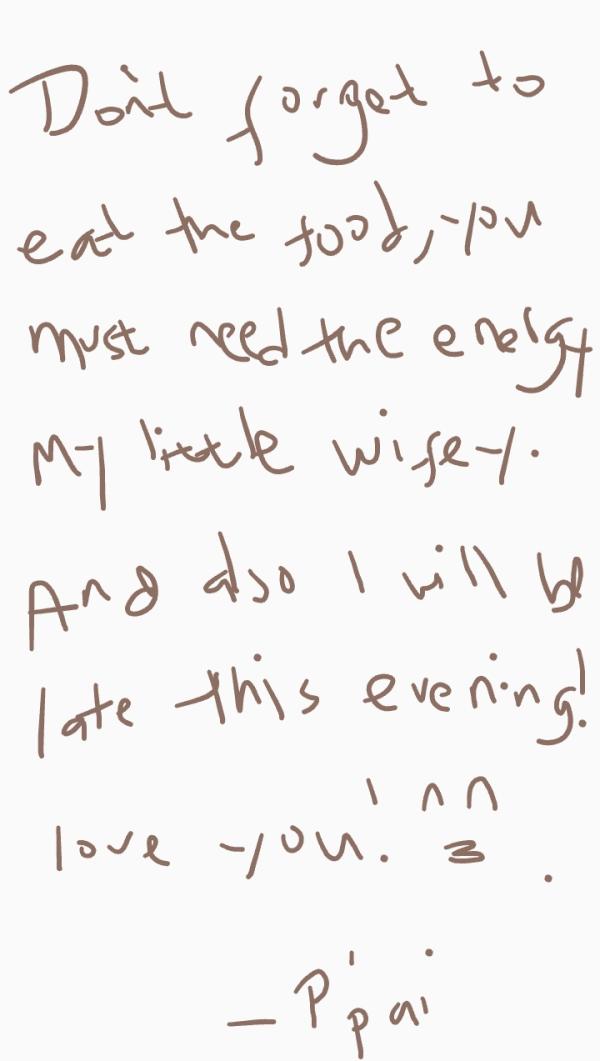 Don't forget to
eat the food, you
must need the energy
My little wifey.
And also I will be
late this evening!
love you! ^^
– P'pai